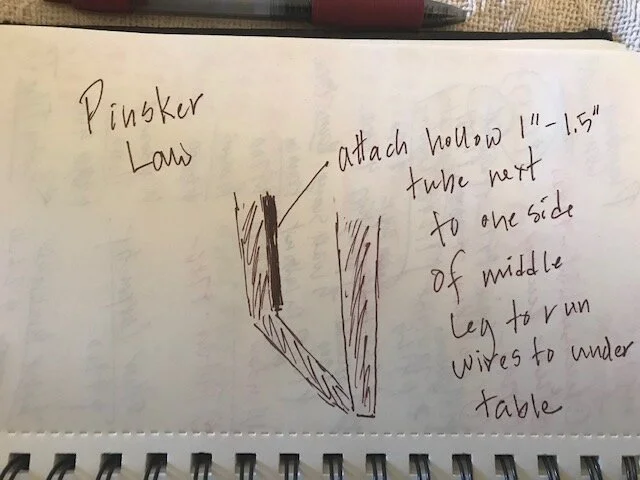 Pinsker
Law
attach hollow 1"-1.5"
tube next
to one side
of middle
Leg to run
wires to under
table